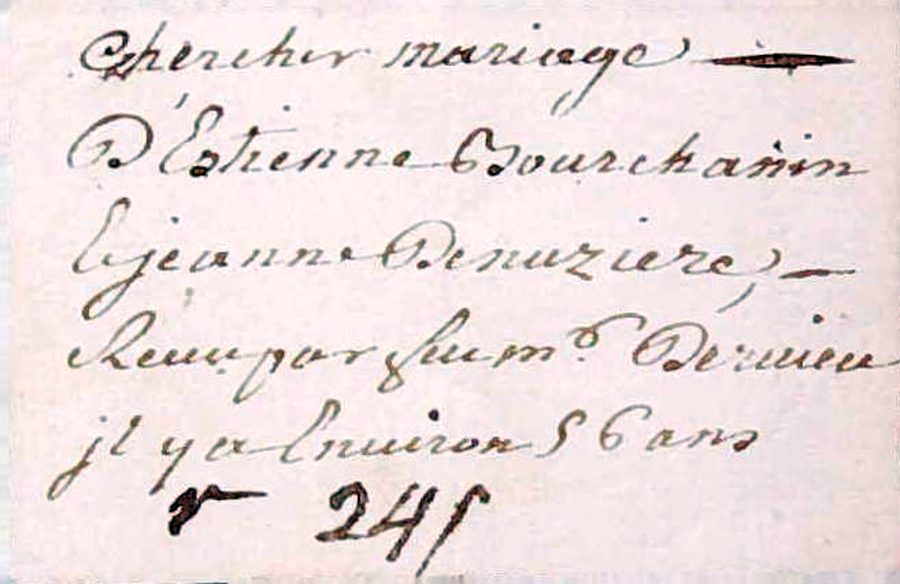 chercher mariage
D'Estienne Bourchanin
Et jeanne Denuziere,
Receu par feu me Dervieu
jl y a Environ 56 ans
r 245